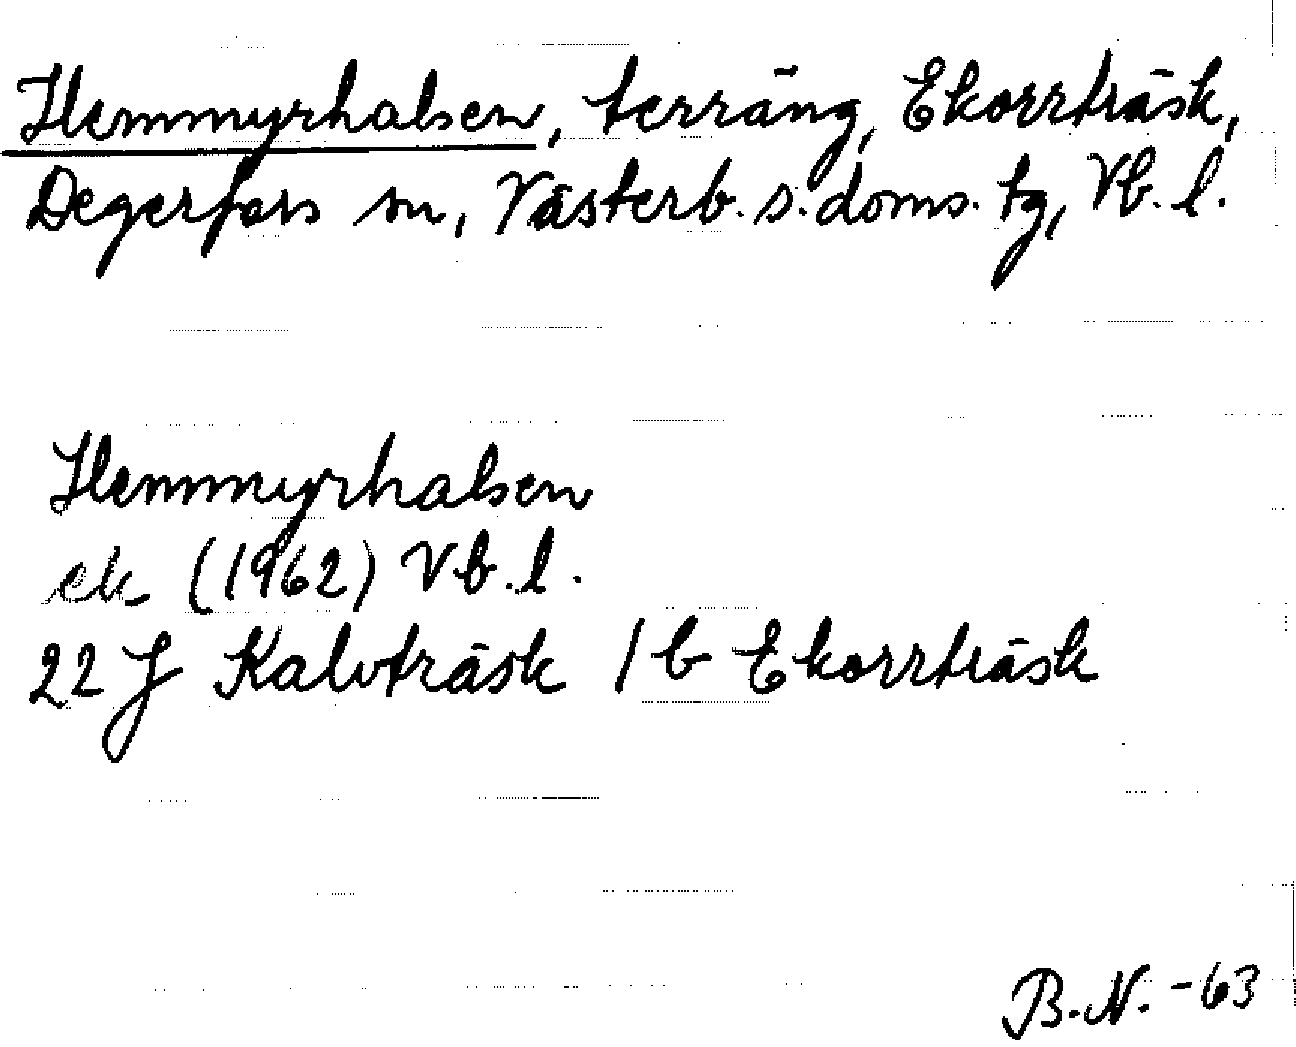 Hemmyrhalsen, terräng, Ekorrträsk,
Degerfors sn, Västerb. s. doms. tg, Vb. l.
Hemmyrhalsen
ek (1962) Vb. l.
22 J Kalvträsk 1 b Ekorrträsk
B.N. -63